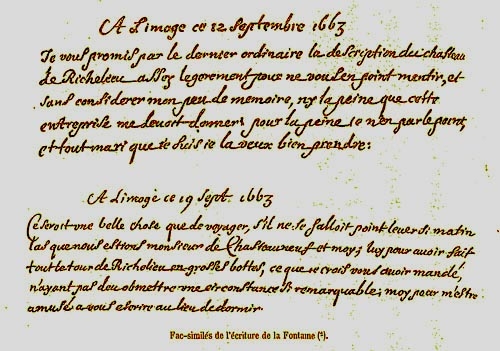 A Limoge ce 12 septembre 1663
Je vous promis par le dernier ordinaire la description du chasteau
de Richelieu assez legerement pour ne vous en point mentir, et
sans considerer mon peu de memoire, ny la peine que cette
entreprise me devoit donner: pour la peine je n'en parle point,
et tout mari que je suis je la veux bien prendre:
A Limoge ce 19 sept. 1663
Ce seroit une belle chose que de voyager, s'il ne se falloit point lever si matin
las que nous estions monsieur de Chasteauneuf et moy; luy pour avoir fait
tout le tour de Richelieu en grosses bottes, ce que je crois vous avoir mandé,
n'ayant pas deu obmettre une circonstance si remarquable; moy pour m'estre
amusé a vous escrire au lieu de dormir.
Fac-similés de l'écriture de la Fontaine (²).